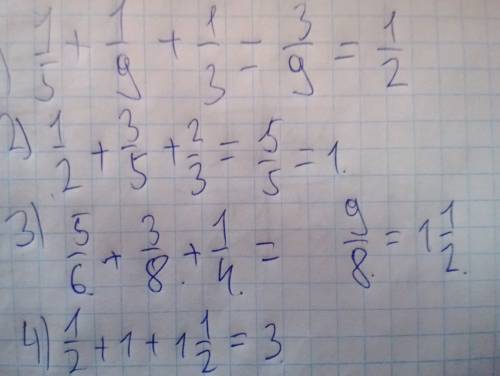 ) 1/5 + 1/9 + 1/3 = 3/9 = 1/2
2) 1/2 + 3/5 + 2/3 = 5/5 = 1.
3) 5/6 + 3/8 + 1/4 = 9/8 = 1 1/2
4) 1/2 + 1 + 1 1/2 = 3